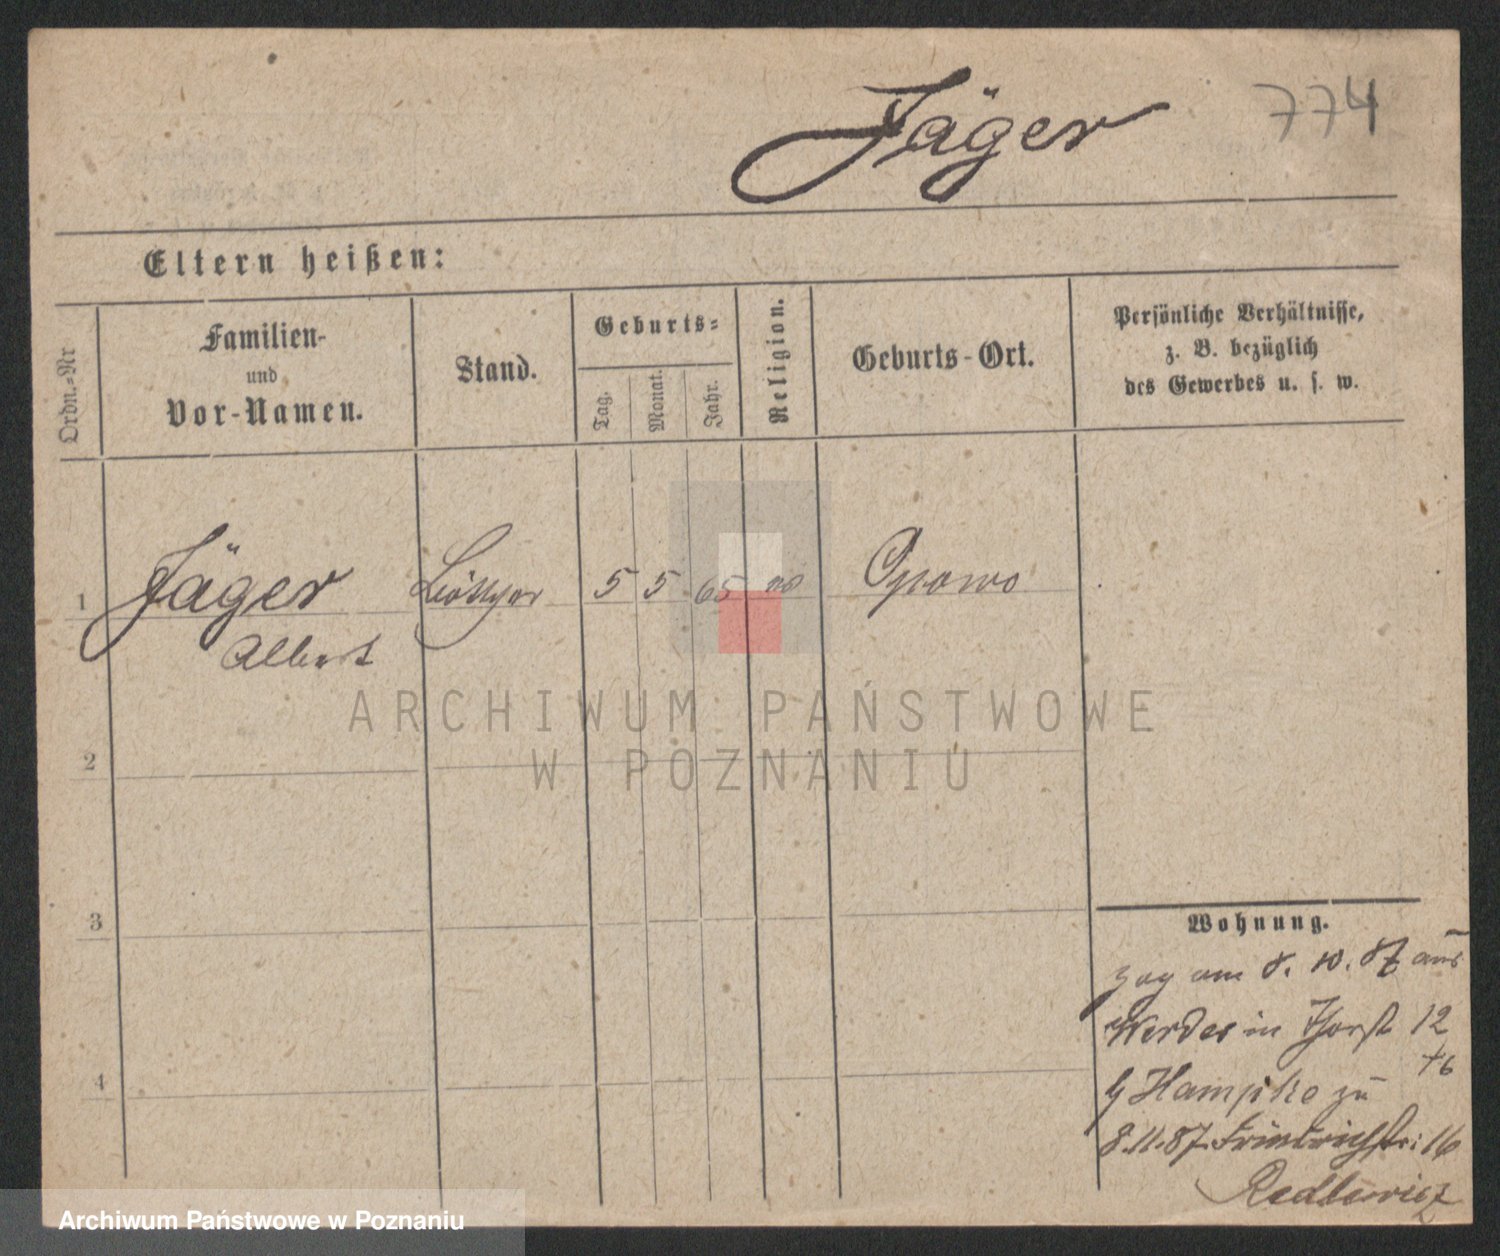 Jäger 774
Eltern heißen:
Ordn.-Nr
Familien-
und
Vor-Namen.
Stand.
Geburts-
Tag.
Monat.
Jahr.
Religion.
Geburts-Ort.
Persönliche Verhältnisse,
z. B. bezüglich
des Gewerbes u. s. w.
1 Jäger 5 5 65
Albert
2
3
4
ARCHIWUM PAŃSTWOWE
W POZNANIU
Wohnung.
zog am 8. 10. 87 aus
Werder in 12
b Hampke zu
8.11.87. Friedrichstr: 16
Redlewicz
Archiwum Państwowe w Poznaniu